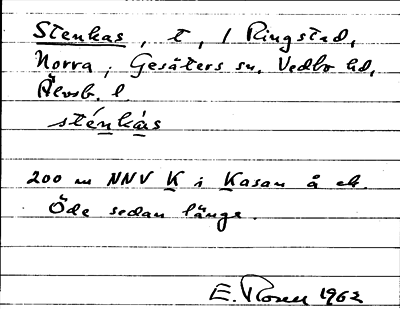 Stenkas, t, / Ringstad,
Norra, Gesäters sn. Vedbo hd,
Älvsb. l
sténkàs
200 m NNV K i Kasan å ek.
Öde sedan länge.
E. Rosen 1962